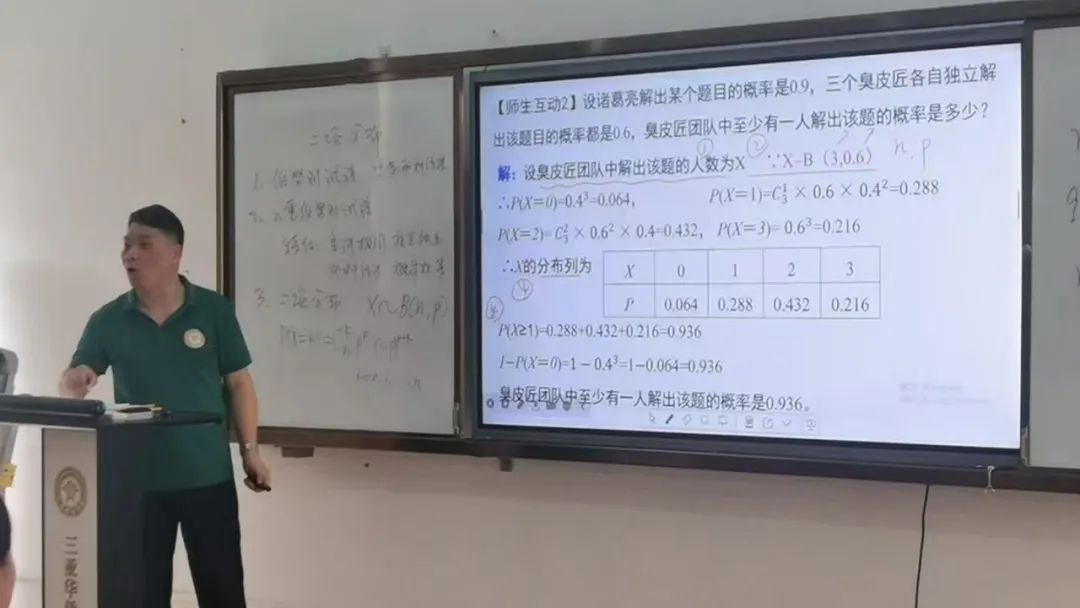 二项分布
1. 伯努利试验
2. n重伯努利试验
3. 二项分布 X~B(n,p)
【师生互动2】设诸葛亮解出某个题目的概率是0.9，三个臭皮匠各自独立解
出该题目的概率都是0.6，臭皮匠团队中至少有一人解出该题的概率是多少？
解：设臭皮匠团队中解出该题的人数为X ① ② ∵X~B（3,0.6） n. p
∴P(X＝0)=0.4³=0.064， P(X＝1)=C₃¹ × 0.6 × 0.4²=0.288
P(X＝2)= C₃² × 0.6² × 0.4=0.432， P(X＝3)= 0.6³=0.216
∴X的分布列为
X 0 1 2 3
P 0.064 0.288 0.432 0.216
P(X≥1)=0.288+0.432+0.216=0.936
1−P(X＝0)=1 − 0.4³=1−0.064=0.936
臭皮匠团队中至少有一人解出该题的概率是0.936。
三亚华侨